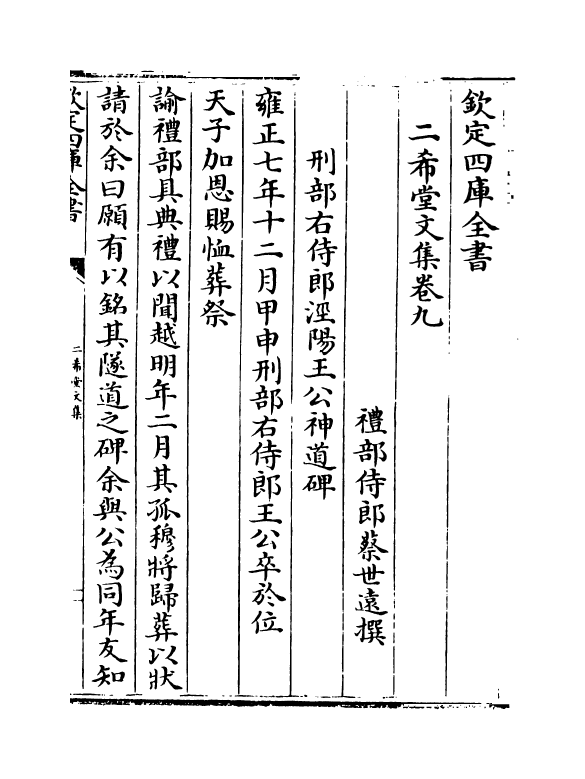 欽定四庫全書
二希堂文集卷九
禮部侍郎蔡世遠撰
刑部右侍郎涇陽王公神道碑
雍正七年十二月甲申刑部右侍郎王公卒於位
天子加恩賜恤葬祭
諭禮部具典禮以聞越明年二月其孤穆將歸葬以狀
請於余曰願有以銘其隧道之碑余與公為同年友知
欽定四庫全書
二希堂文集
一